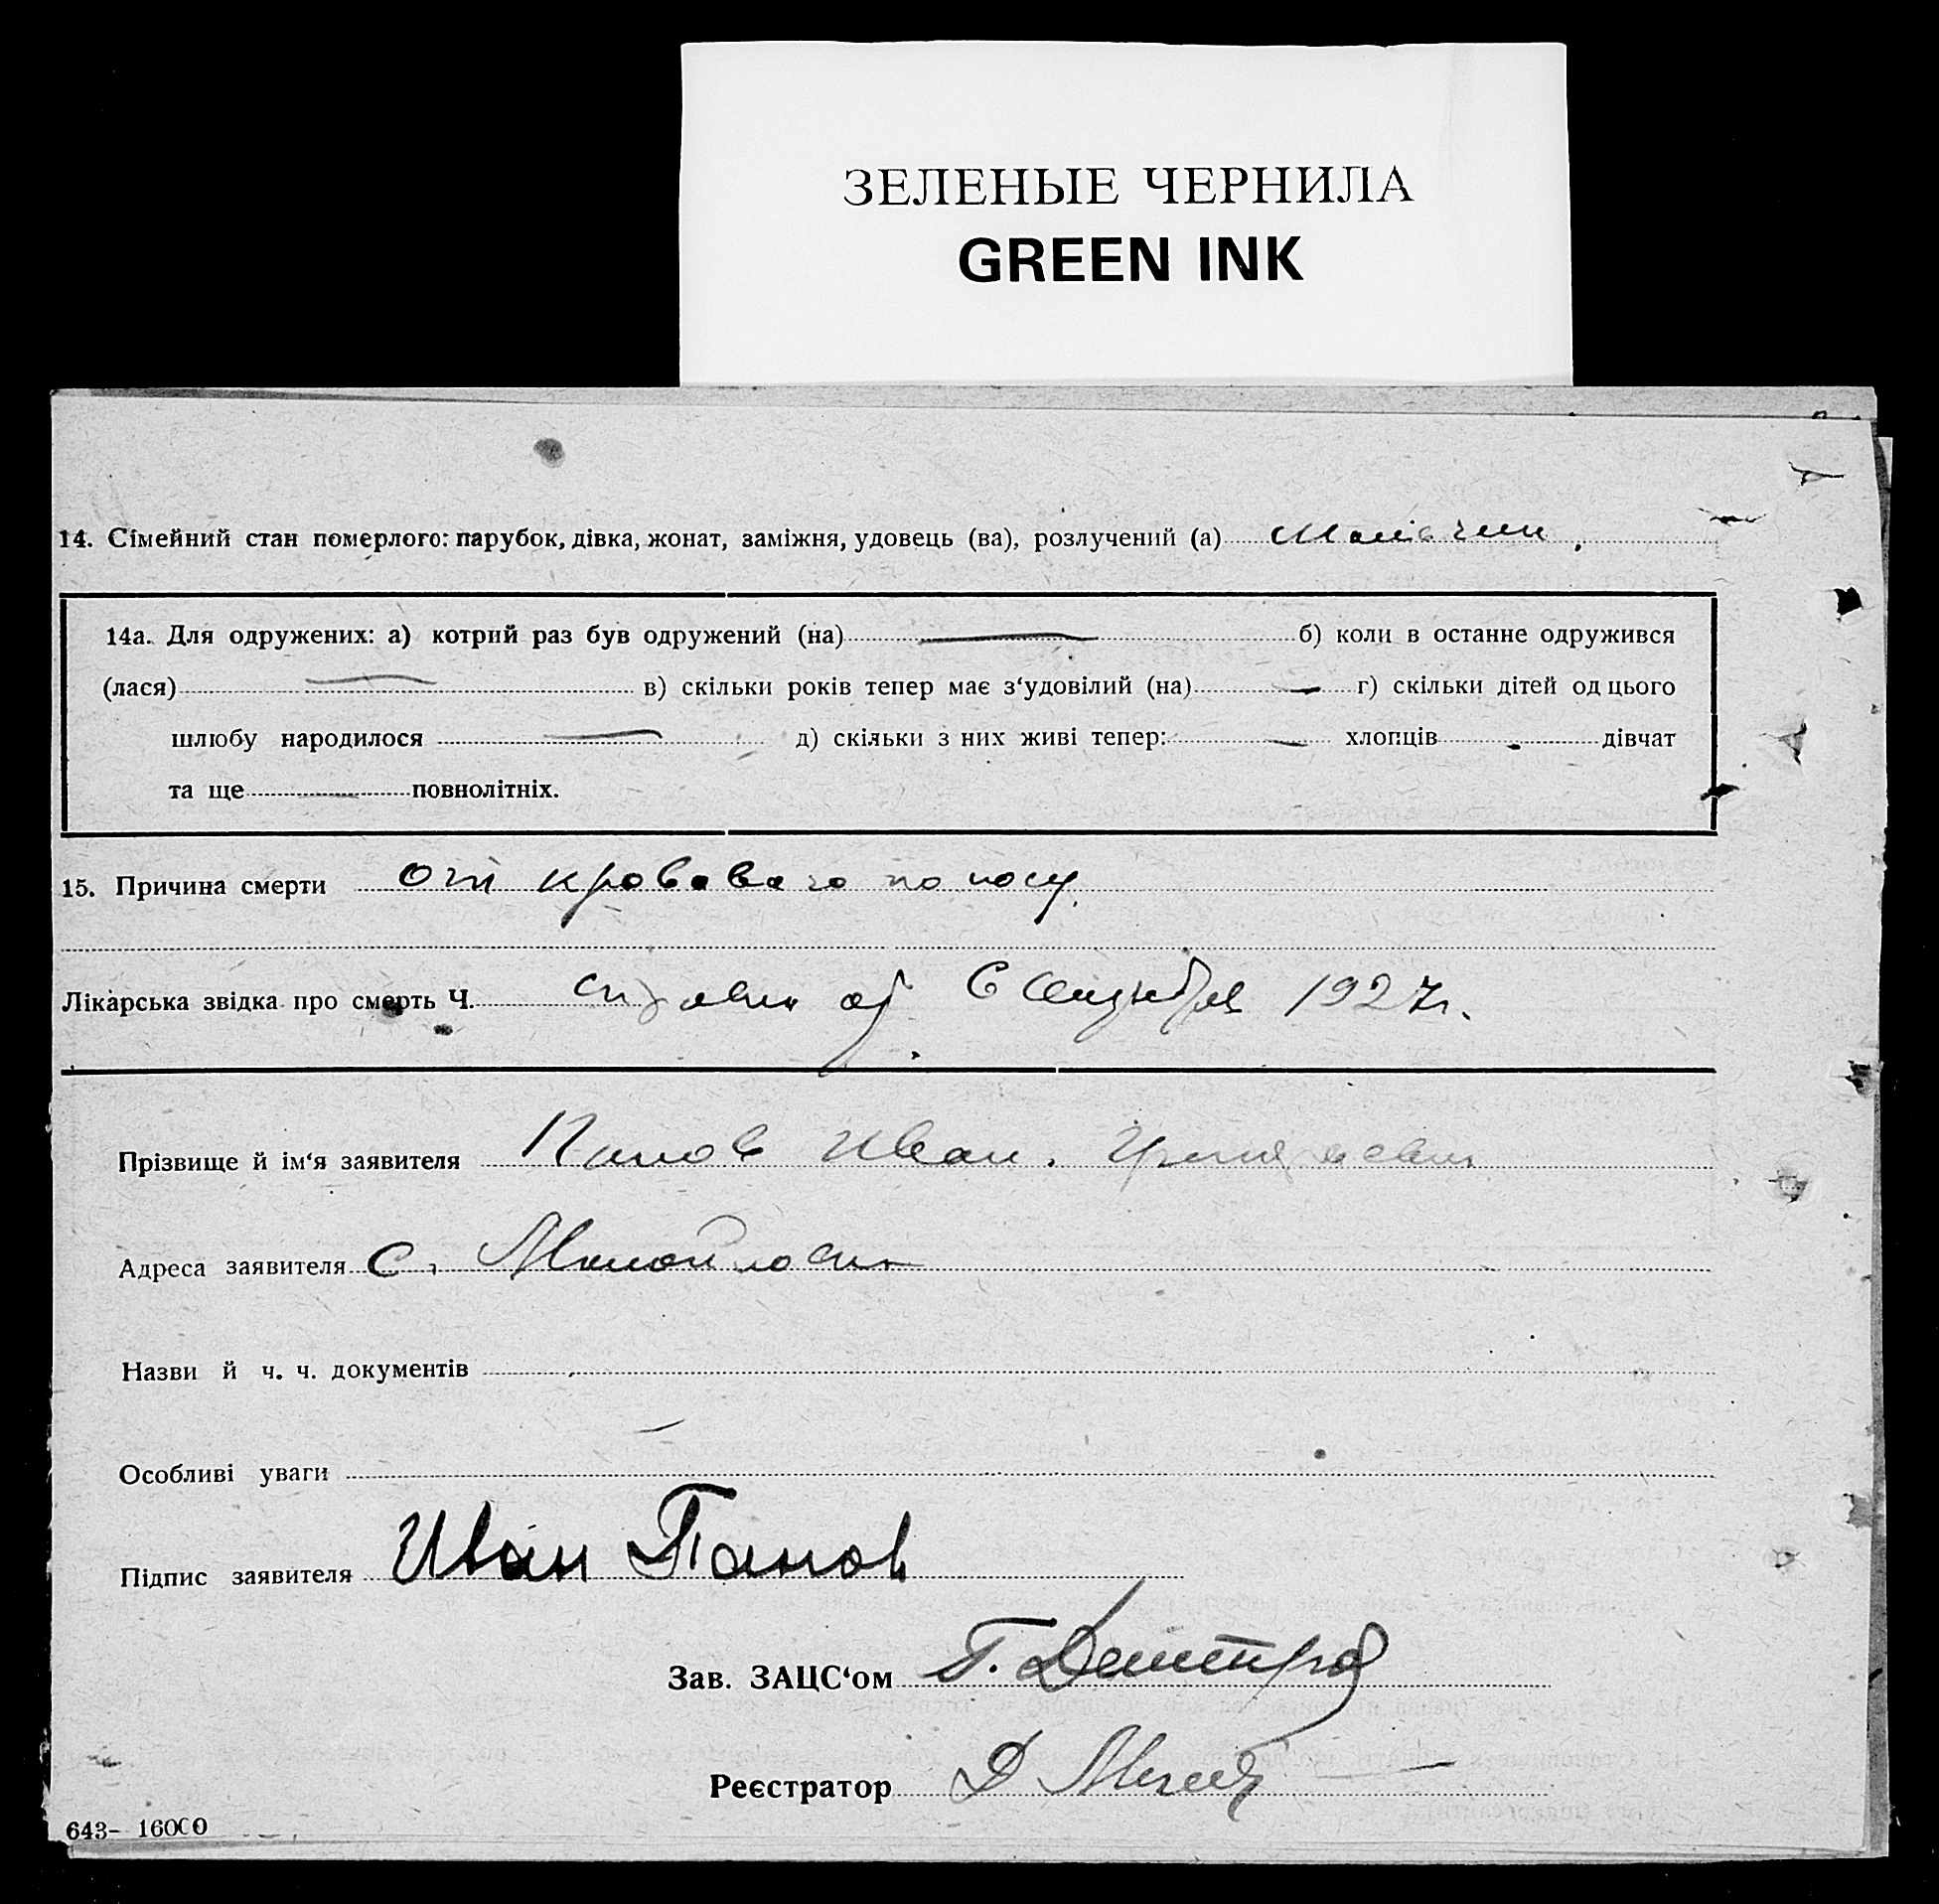 ЗЕЛЕНЫЕ ЧЕРНИЛА
GREEN INK
14. Сімейний стан померлого: парубок, дівка, жонат, заміжня, удовець (ва), розлучений (а)
14а. Для одружених: а) котрий раз був одружений (на) — б) коли в останне одружився
(лася) — в) скільки років тепер має з‘удовілий (на) — г) скільки дітей од цього
шлюбу народилося — д) скільки з них живі тепер: — хлопців - дівчат
та ще — повнолітніх.
15. Причина смерти от кровавого поносу.
Лікарська звідка про смерть Ч. 1927 г.
Прізвище й ім‘я заявителя Панов Иван.
Адреса заявителя с.
Назви й ч. ч. документів
Особливі уваги
Підпис заявителя Иван Панов
Зав. ЗАЦС‘ом
Реєстратор Д
643- 16000